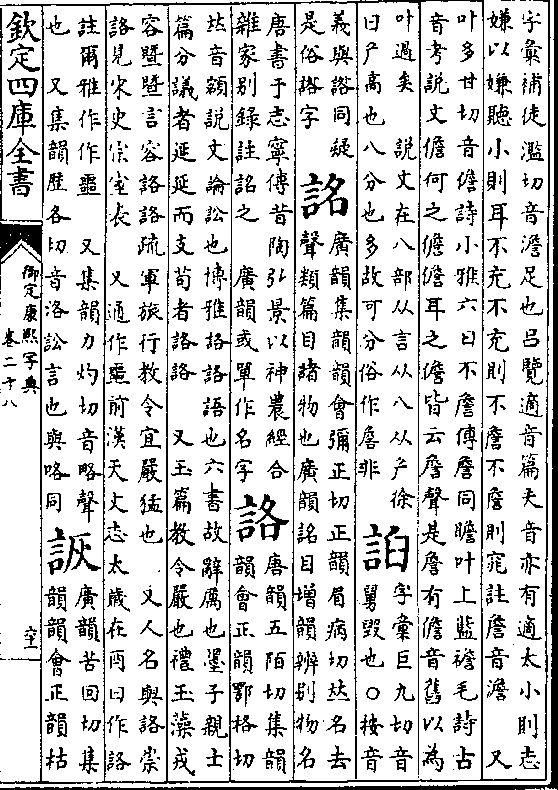 字彙補徒濫切音澹足也吕覽適音篇夫音亦有適太小則志
嫌以嫌聽小則耳不充不充則不詹不詹則窕註詹音澹 又
叶多甘切音儋詩小雅六日不詹傳詹同瞻叶上藍襜毛詩古
音考説文儋何之儋儋耳之儋皆云詹聲是詹有儋音舊以為
叶過矣 説文在八部从言从八从厃徐
曰厃高也八分也多故可分俗作詹非
字彙巨九切音
舅毁也○按音
義與 同疑
是俗 字
詺
廣韻集韻韻會彌正切正韻眉病切𠀤名去
聲類篇目諸物也廣韻詺目增韻辨别物名
唐書于志寧傳昔陶弘景以神農經合
雜家别錄註詺之 廣韻或單作名字
詻
唐韻五陌切集韻
韻會正韻鄂格切
𠀤音額説文論訟也博雅詻詻語也六書故辭厲也墨子親士
篇分議者延延而支苟者詻詻 又玉篇教令嚴也禮玉藻戎
容暨暨言容詻詻疏軍旅行教令宜嚴猛也 又人名與詻崇
詻見宋史宗室表 又通作噩前漢天文志太歲在酉曰作詻
註爾雅作作噩 又集韻力灼切音略聲
也 又集韻歴各切音洛訟言也與咯同
詼
廣韻苦回切集
韻韻會正韻枯
欽定四庫全書
御定康熙字典
卷二十八